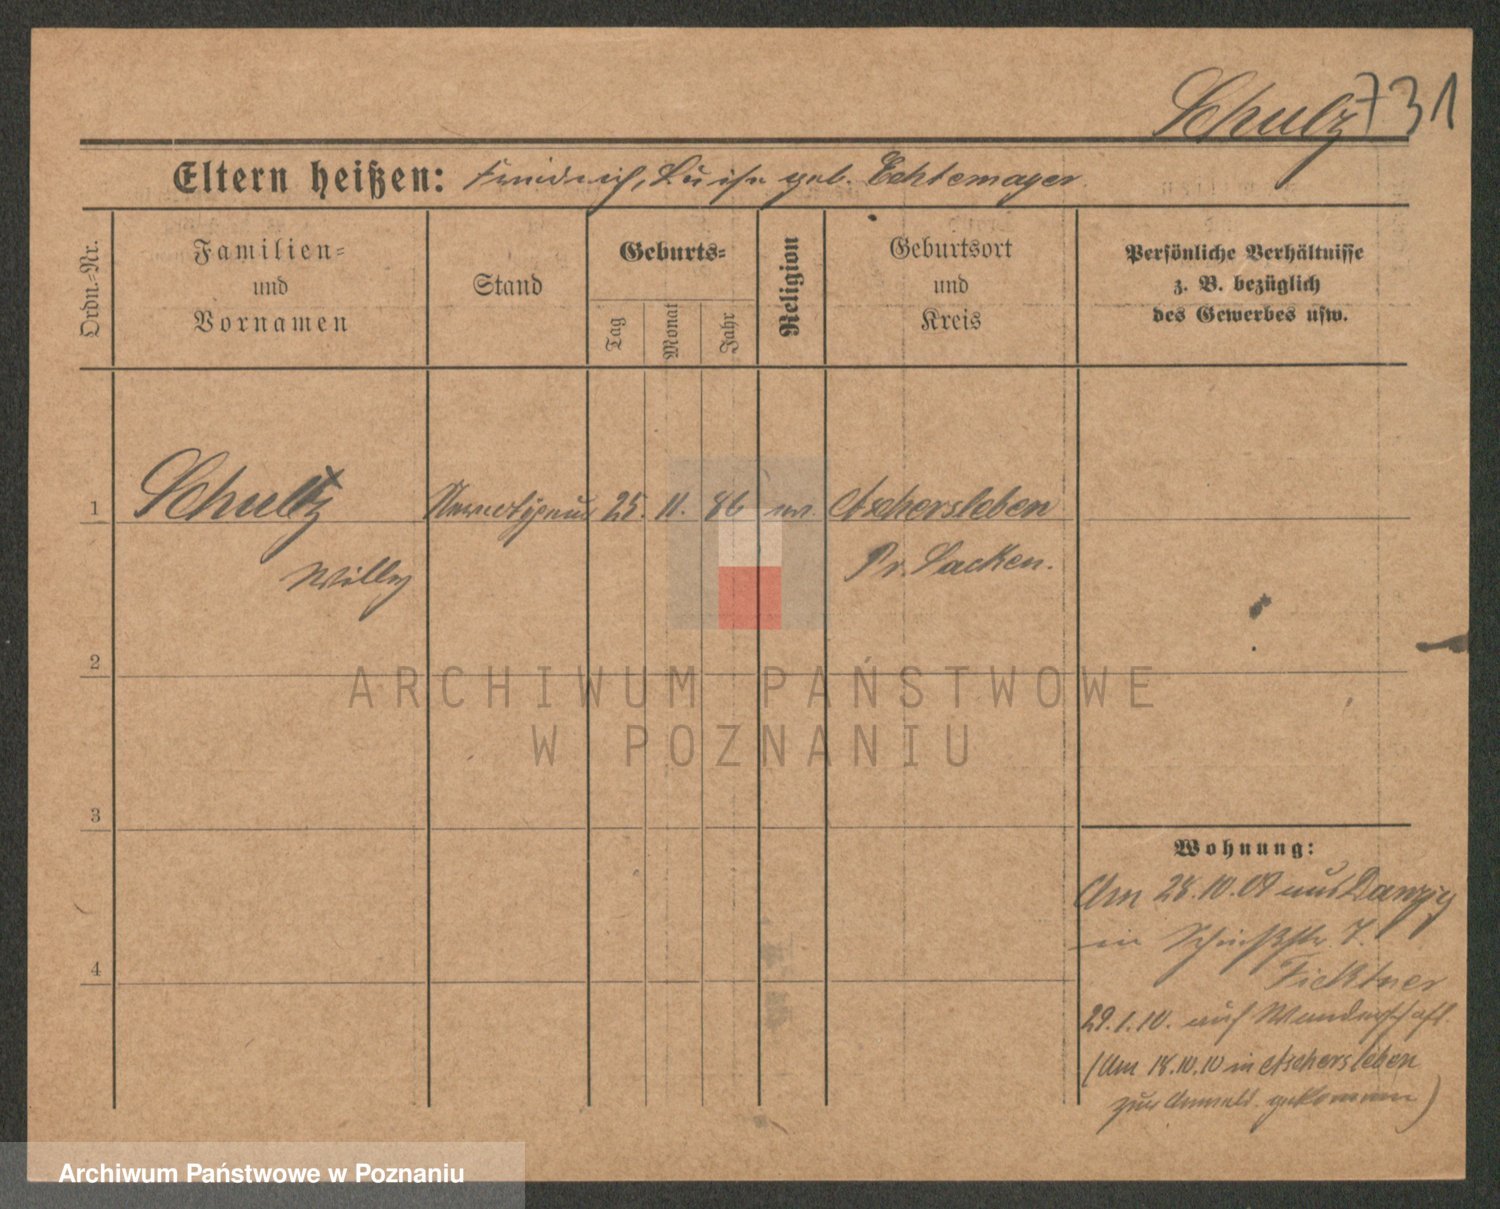 Schulz 731
Eltern heißen: Friedrich, Luise geb. Echtemayer.
Ordn.-Nr.
Familien-
und
Vornamen
Stand
Geburts-
Tag
Monat
Jahr
Religion
Geburtsort
und
Kreis
Persönliche Verhältnisse
z. B. bezüglich
des Gewerbes usw.
1 Schultz 25. 11. 86 ev. Aschersleben
Willy Pr. Sachsen.
2
ARCHIWUM PAŃSTWOWE
W POZNANIU
3
Wohnung:
Am 28.10.09 aus Danzig
in Schießstr. 7.
4
Fichtner
29.1.10. auf Wanderschaft.
(Am 18.10.10 in Aschersleben
zur Anmeld. gekommen)
Archiwum Państwowe w Poznaniu